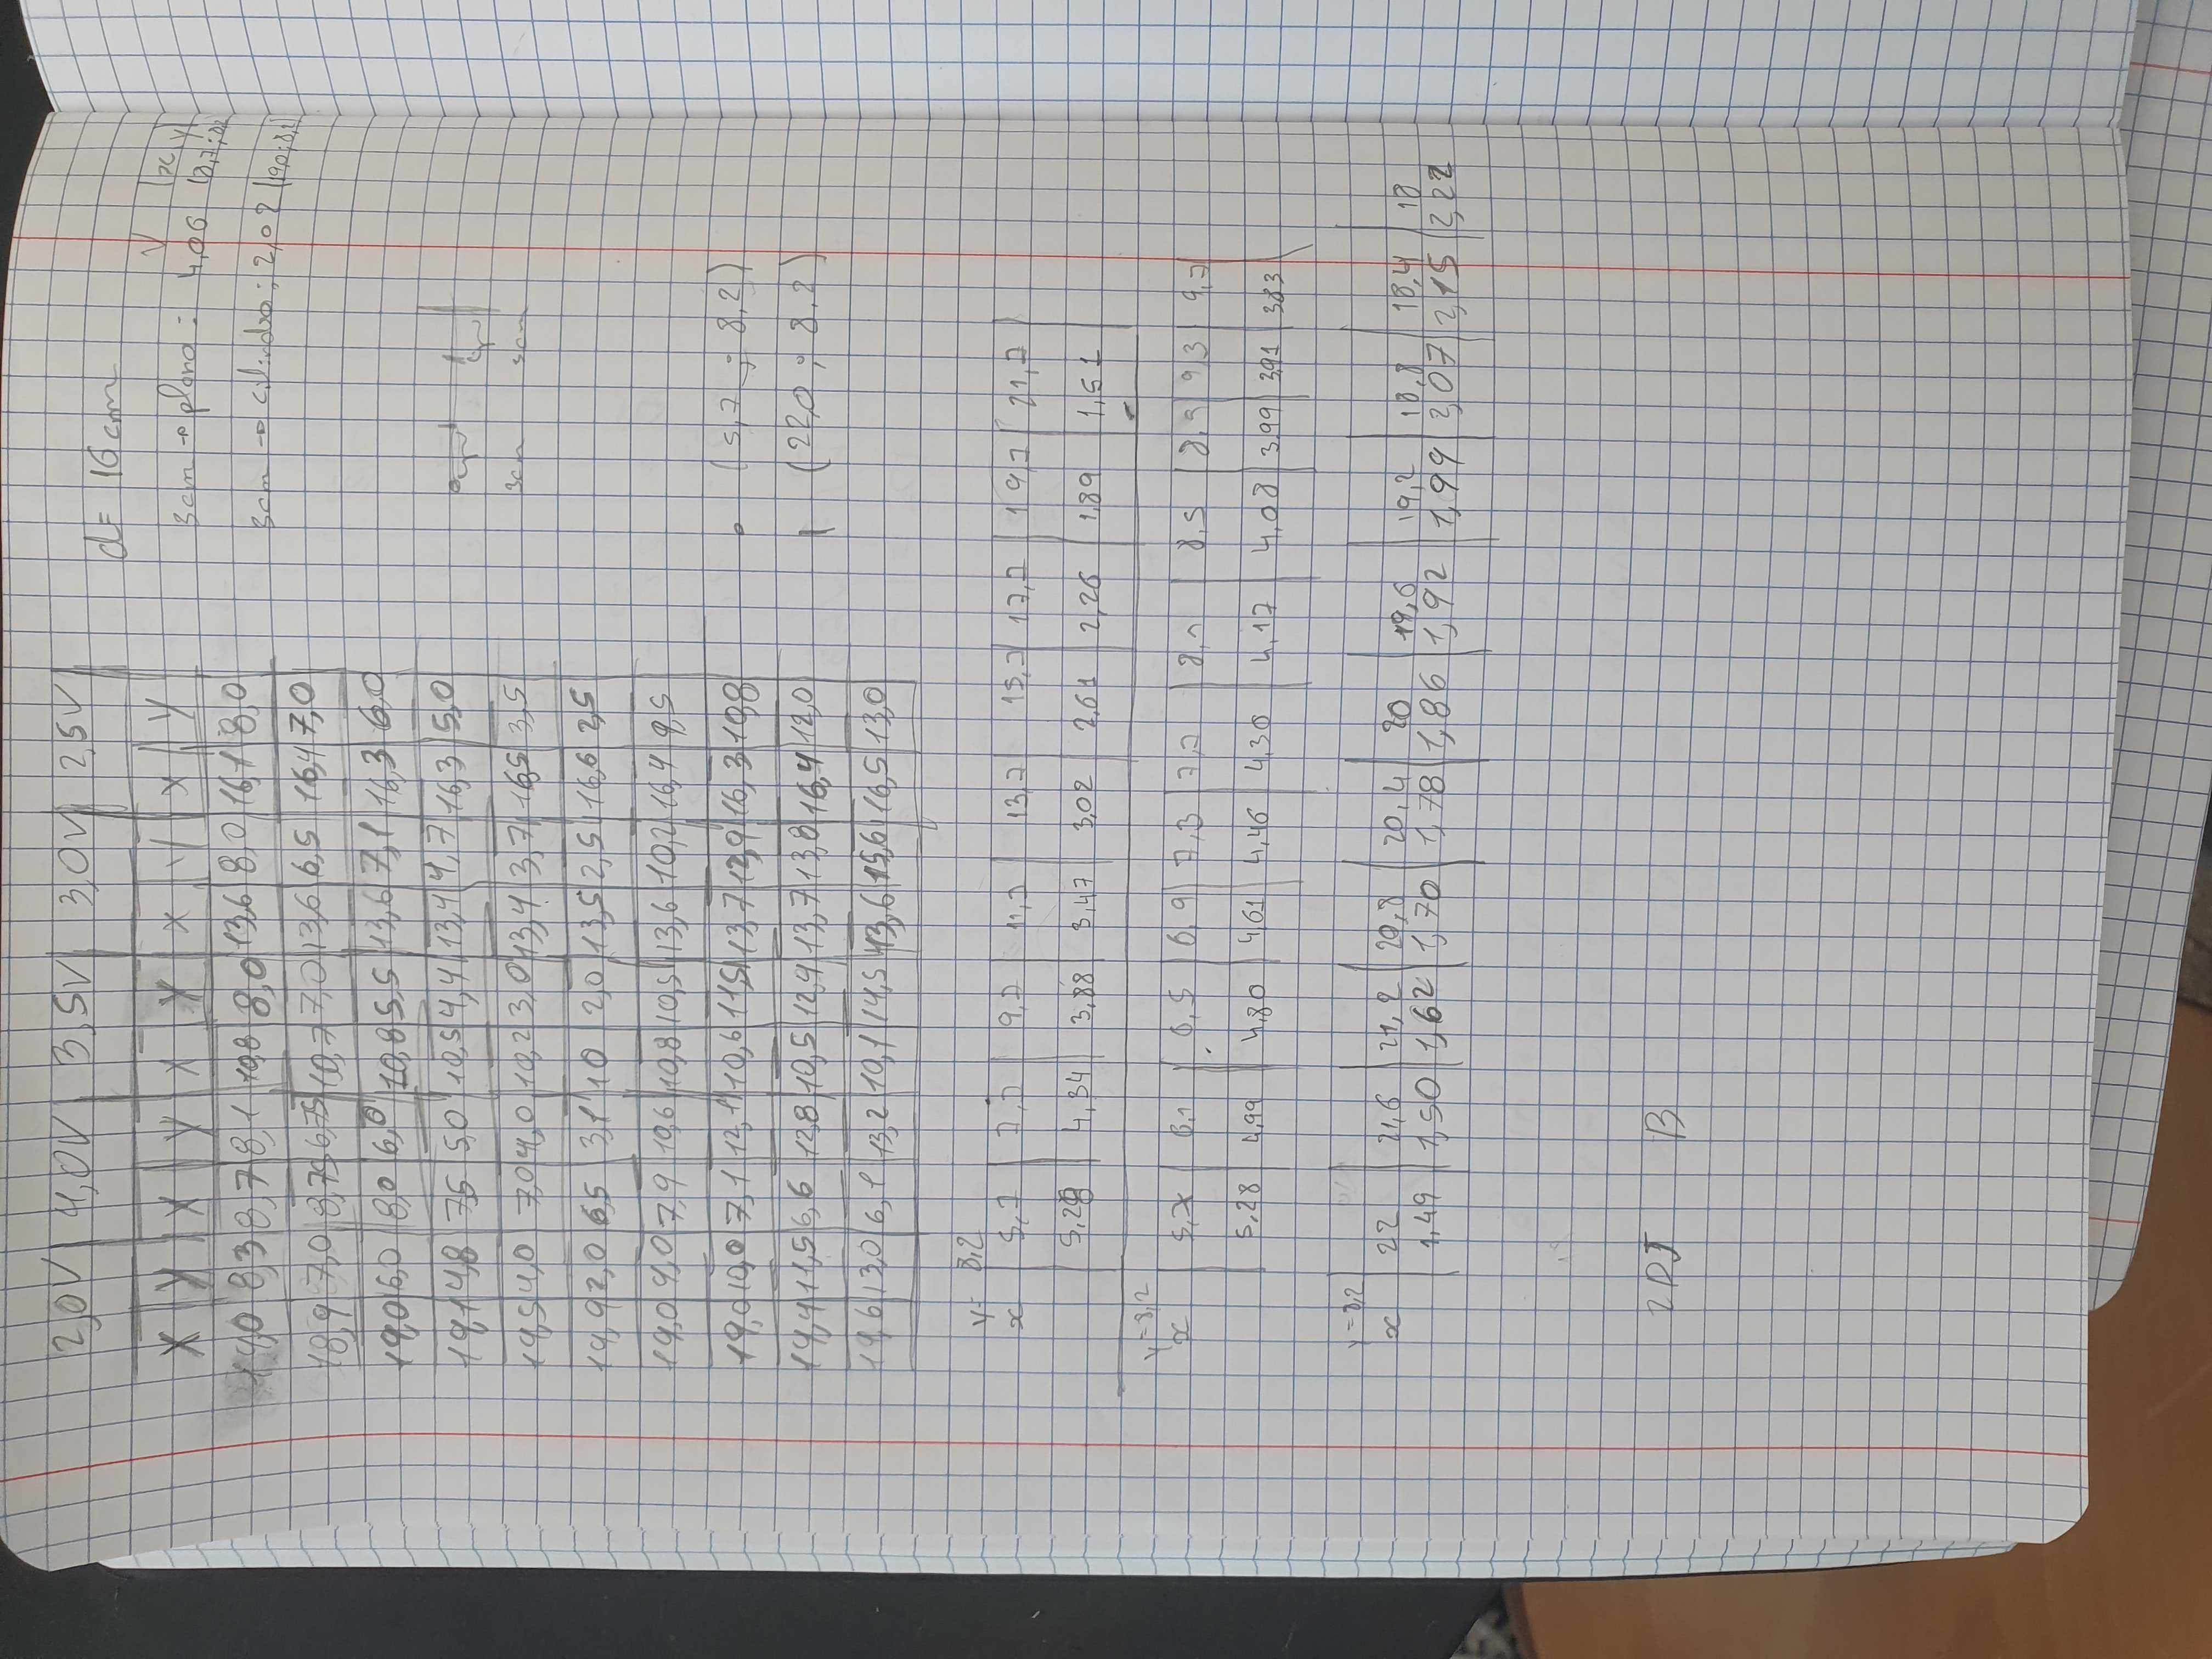 2,0V 4,0V 3,5V 3,0V 2,5V
x y x y x y x y x y
19,0 8,3 8,7 8,1 10,8 8,0 13,6 8,0 16,1 8,0
18,9 7,0 8,75 6,75 10,7 7,0 13,6 6,5 16,4 7,0
19,0 6,0 8,0 6,0 10,8 5,5 13,6 7,1 16,3 6,0
19,1 4,8 7,5 5,0 10,5 4,4 13,4 4,7 16,3 5,0
19,5 4,0 7,0 4,0 10,2 3,0 13,4 3,7 16,5 3,5
19,9 2,0 6,5 3,1 10 2,0 13,5 2,5 16,6 2,5
19,0 9,0 7,9 10,6 10,8 10,5 13,6 10,2 16,4 9,5
19,0 10,0 7,1 12,1 10,6 11,5 13,7 12,9 16,3 10,8
19,4 11,5 6,6 12,8 10,5 12,9 13,7 13,8 16,4 12,0
19,6 13,0 6,1 13,2 10,1 14,5 13,6 15,6 16,5 13,0
d= 16 cm
V (x,y)
3cm → plano: 4,06 (8,7;8,2
3cm → cilindro: 2,02 (19,0;8,2)
3cm 3cm
• (5,7 ; 8,2)
| (22,0 ; 8,2)
y= 8,2
x 5,7 7,7 9,7 11,7 13,7 15,7 17,7 19,7 21,7
5,28 4,34 3,88 3,47 3,02 2,61 2,26 1,89 1,51
y=8,2
x 5,7 6,1 6,5 6,9 7,3 7,7 8,1 8,5 8,9 9,3 9,7
5,28 4,99 4,80 4,61 4,46 4,30 4,17 4,08 3,99 3,91 3,83
y=8,2
x 22 21,6 21,2 20,8 20,4 20 19,6 19,2 18,8 18,4 18
1,49 1,50 1,62 1,70 1,78 1,86 1,92 1,99 2,07 2,15 2,22
B